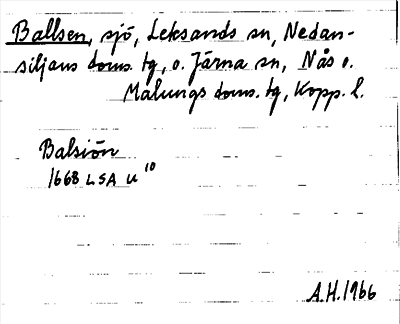 Ballsen, sjö, Leksands sn, Nedan-
siljans doms. tg, o. Järna sn, Nås o.
Malungs doms. tg, Kopp. l.
Balsiön
1668 LSA U 10
A.H. 1966